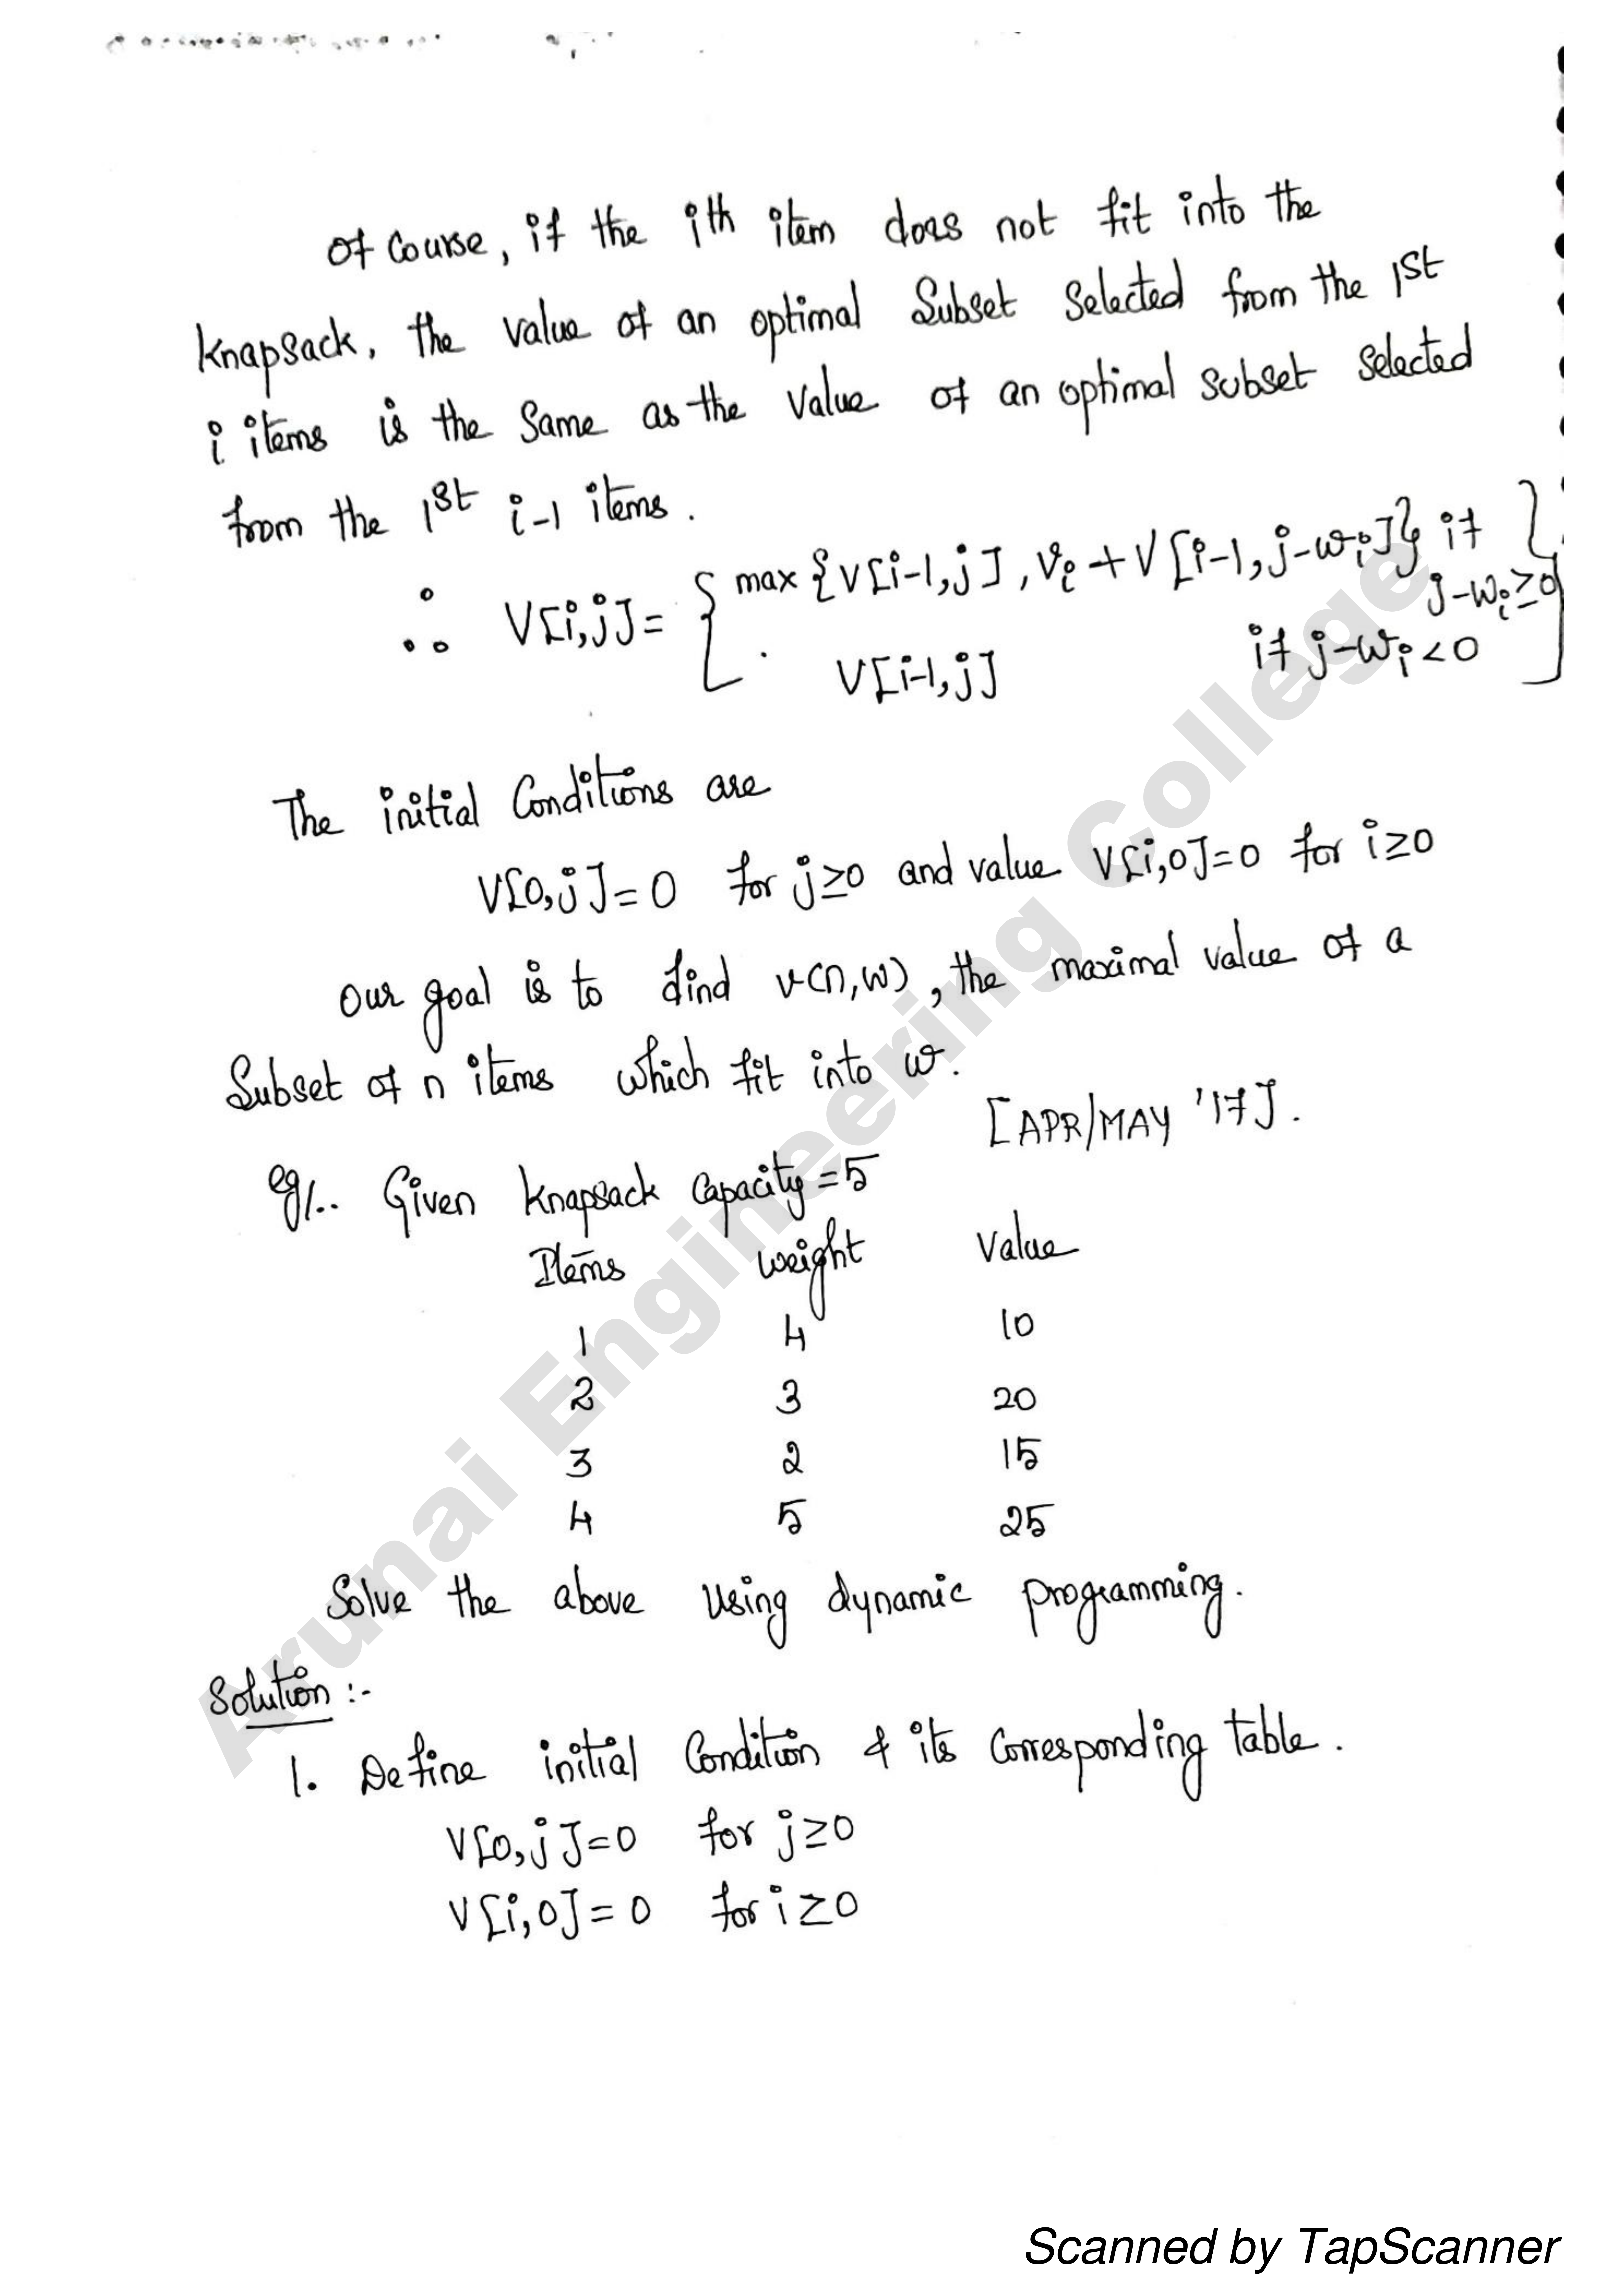 Of Course, if the ith item does not fit into the
Knapsack, the value of an optimal Subset Selected from the 1st
i items is the Same as the Value of an optimal subset selected
from the 1st i-1 items.
∴ V[i,j] = { max {V[i-1,j], Vi + V[i-1, j-wi]} if j-wi ≥ 0 }
V[i-1,j] if j-wi < 0
The initial Conditions are
V[0,j] = 0 for j≥0 and value V[i,0]=0 for i≥0
Our goal is to find v(n,w), the maximal value of a
Subset of n items which fit into w.
[APR/MAY '17].
eg1.. Given Knapsack Capacity = 5
Items weight Value
1 4 10
2 3 20
3 2 15
4 5 25
Solve the above using dynamic programming.
Solution :-
1. Define initial Condition & its Corresponding table.
V[0,j]=0 for j≥0
V[i,0]=0 for i≥0
Arunai Engineering College
Scanned by TapScanner